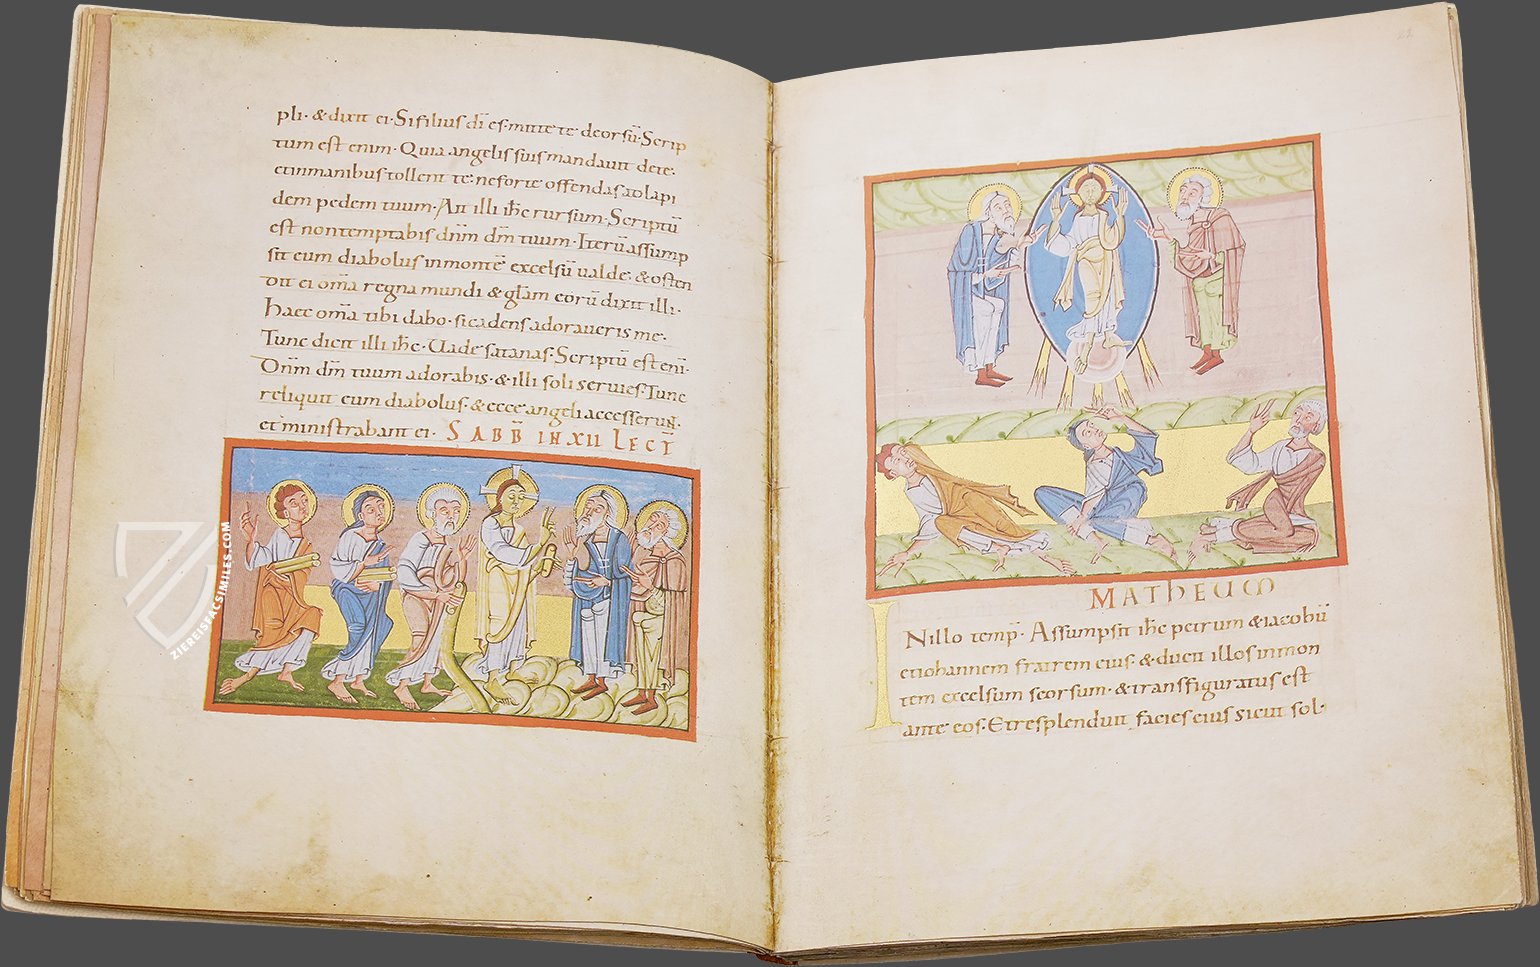 pli· & dixit ei· Si filius dī es· mitte te deorsū· Scrip
tum est enim· Quia angelis suis mandavit de te·
et in manibus tollent te· ne forte offendas ad lapi
dem pedem tuum· Ait illi ihc̄ rursum· Scriptū
est non temptabis dn̄m dm̄ tuum· Iterū assump
sit eum diabolus in monte excelsū valde· & osten
dit ei om̄a regna mundi & glām eorū dixit illi·
Haec om̄a tibi dabo· si cadens adoraveris me·
Tunc dicit illi ihc̄· Uade satanas· Scriptū est eni·
Dn̄m dm̄ tuum adorabis· & illi soli servies· Tunc
reliquit eum diabolus· & ecce angeli accesserun̄t·
et ministrabant ei· SABB̄ IN XII LECT̄
ZIEREISFACSIMILES.COM
MATHEUM
INillo temp̄· Assumpsit ihc̄ petrum & iacobū
et iohannem fratrem eius· & ducit illos in mon
tem excelsum seorsum· & transfiguratus est
ante eos· Et resplenduit facies eius sicut sol·